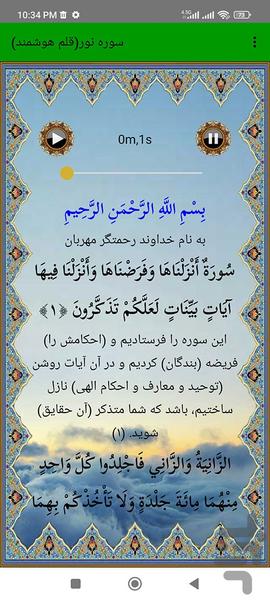 10:34 PM
4.5G
73
سوره نور(قلم هوشمند)
0m,1s
بِسْمِ اللَّهِ الرَّحْمَنِ الرَّحِيمِ
به نام خداوند رحمتگر مهربان
سُورَةٌ أَنْزَلْنَاهَا وَفَرَضْنَاهَا وَأَنْزَلْنَا فِيهَا
آيَاتٍ بَيِّنَاتٍ لَعَلَّكُمْ تَذَكَّرُونَ ﴿۱﴾
این سوره را فرستادیم و (احکامش را)
فریضه (بندگان) کردیم و در آن آیات روشن
(توحید و معارف و احکام الهی) نازل
ساختیم، باشد که شما متذکر (آن حقایق)
شوید. (۱)
الزَّانِيَةُ وَالزَّانِي فَاجْلِدُوا كُلَّ وَاحِدٍ
مِنْهُمَا مِائَةَ جَلْدَةٍ وَلَا تَأْخُذْكُمْ بِهِمَا